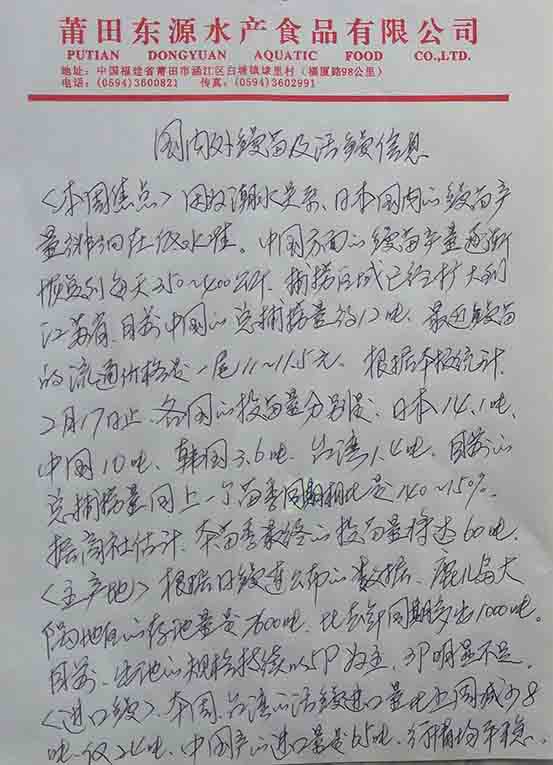 莆田东源水产食品有限公司
PUTIAN DONGYUAN AQUATIC FOOD CO.,LTD.
地址：中国福建省莆田市涵江区白塘镇埭里村（横厦路98公里）
电话：(0594)3600821 传真：(0594)3602991
国内外鳗苗及活鳗信息
〈本周焦点〉因为潮水关系、日本国内的鳗苗产
量徘徊在低水准。中国方面的鳗苗产量逐渐
增到每天350～400公斤．捕捞区域已经扩大到
江苏省．目前中国的总捕捞量约12吨．最近鳗苗
的流通价格是一尾11～11.5元。根据本报统计．
2月17日止．各国的投苗量分别是．日本14.1吨．
中国10吨．韩国3.6吨．台湾1.4吨．目前的
总捕捞量同上一个苗季同期相比是140～150%．
据商社估计．本苗季最终的投苗量将达60吨．
〈主产地〉根据日鳗连公布的数据．鹿儿岛大
隅地区的存池量是7600吨．比去年同期多出1000吨。
目前．出池的规格持续以5P为主．3P明显不足．
〈进口鳗〉．本周．台湾的活鳗进口量比上周减少8
吨．仅24吨．中国产的进口量是65吨．行情均平稳．